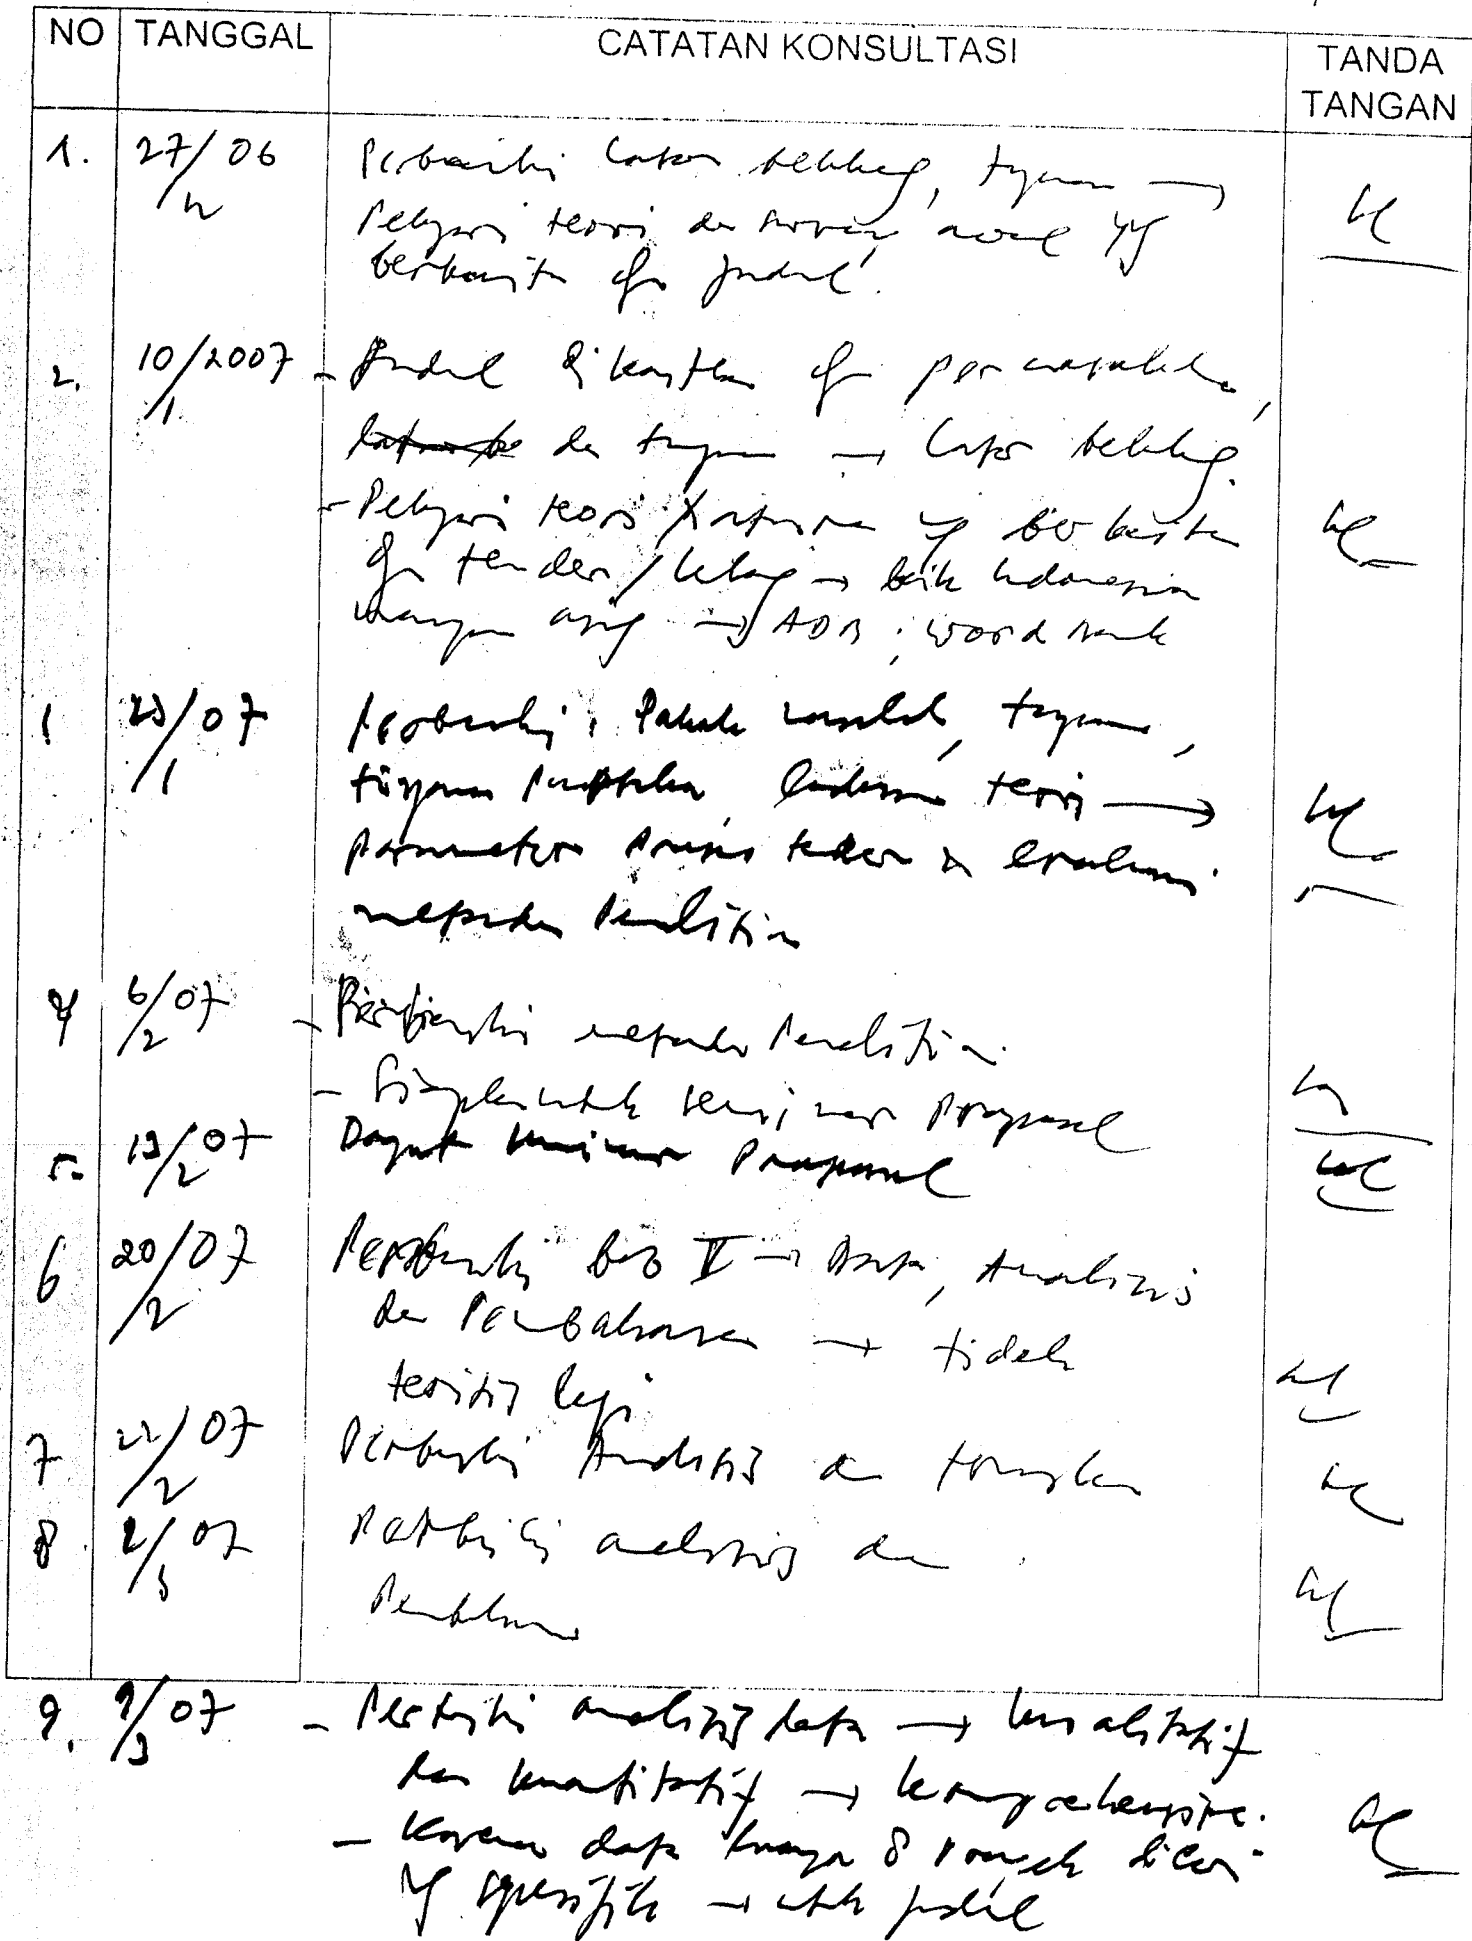 NO TANGGAL CATATAN KONSULTASI TANDA TANGAN
1. 27/06 Perbaiki latar belakang, tujuan →
/12 Pelajari teori dan survey awal yg
berkaitan dgn judul.
2. 10/2007 - Judul dikaitkan dgn permasalahan,
/1 dan tujuan → latar belakang.
- Pelajari teori yg berkaitan
dgn tender/lelang → baik Indonesia
maupun asing → ADB, Word Bank
23/07 Perbaiki: Pokok masalah, tujuan,
/1 tinjauan pustaka, landasan teori →
parameter proses tender & evaluasi
metode penelitian
4 6/07 - Perbaiki metode Penelitian.
/2 - Siapkan utk seminar Proposal
5. 13/07 Dapat seminar Proposal
/2
6 20/07 Perbaiki bab V → Data, Analisis
/2 dan Pembahasan → tidak
teoritis lagi
7 22/07 Perbaiki Analisis dan
/2
8 2/07 Perbaiki analisis dan
/3 Pembahasan
9. 9/07 - Perbaiki analisis data → kualitatif
/3 dan kuantitatif → komprehensive.
- Karena data hanya 8 proyek dicari
yg spesifik → utk judul